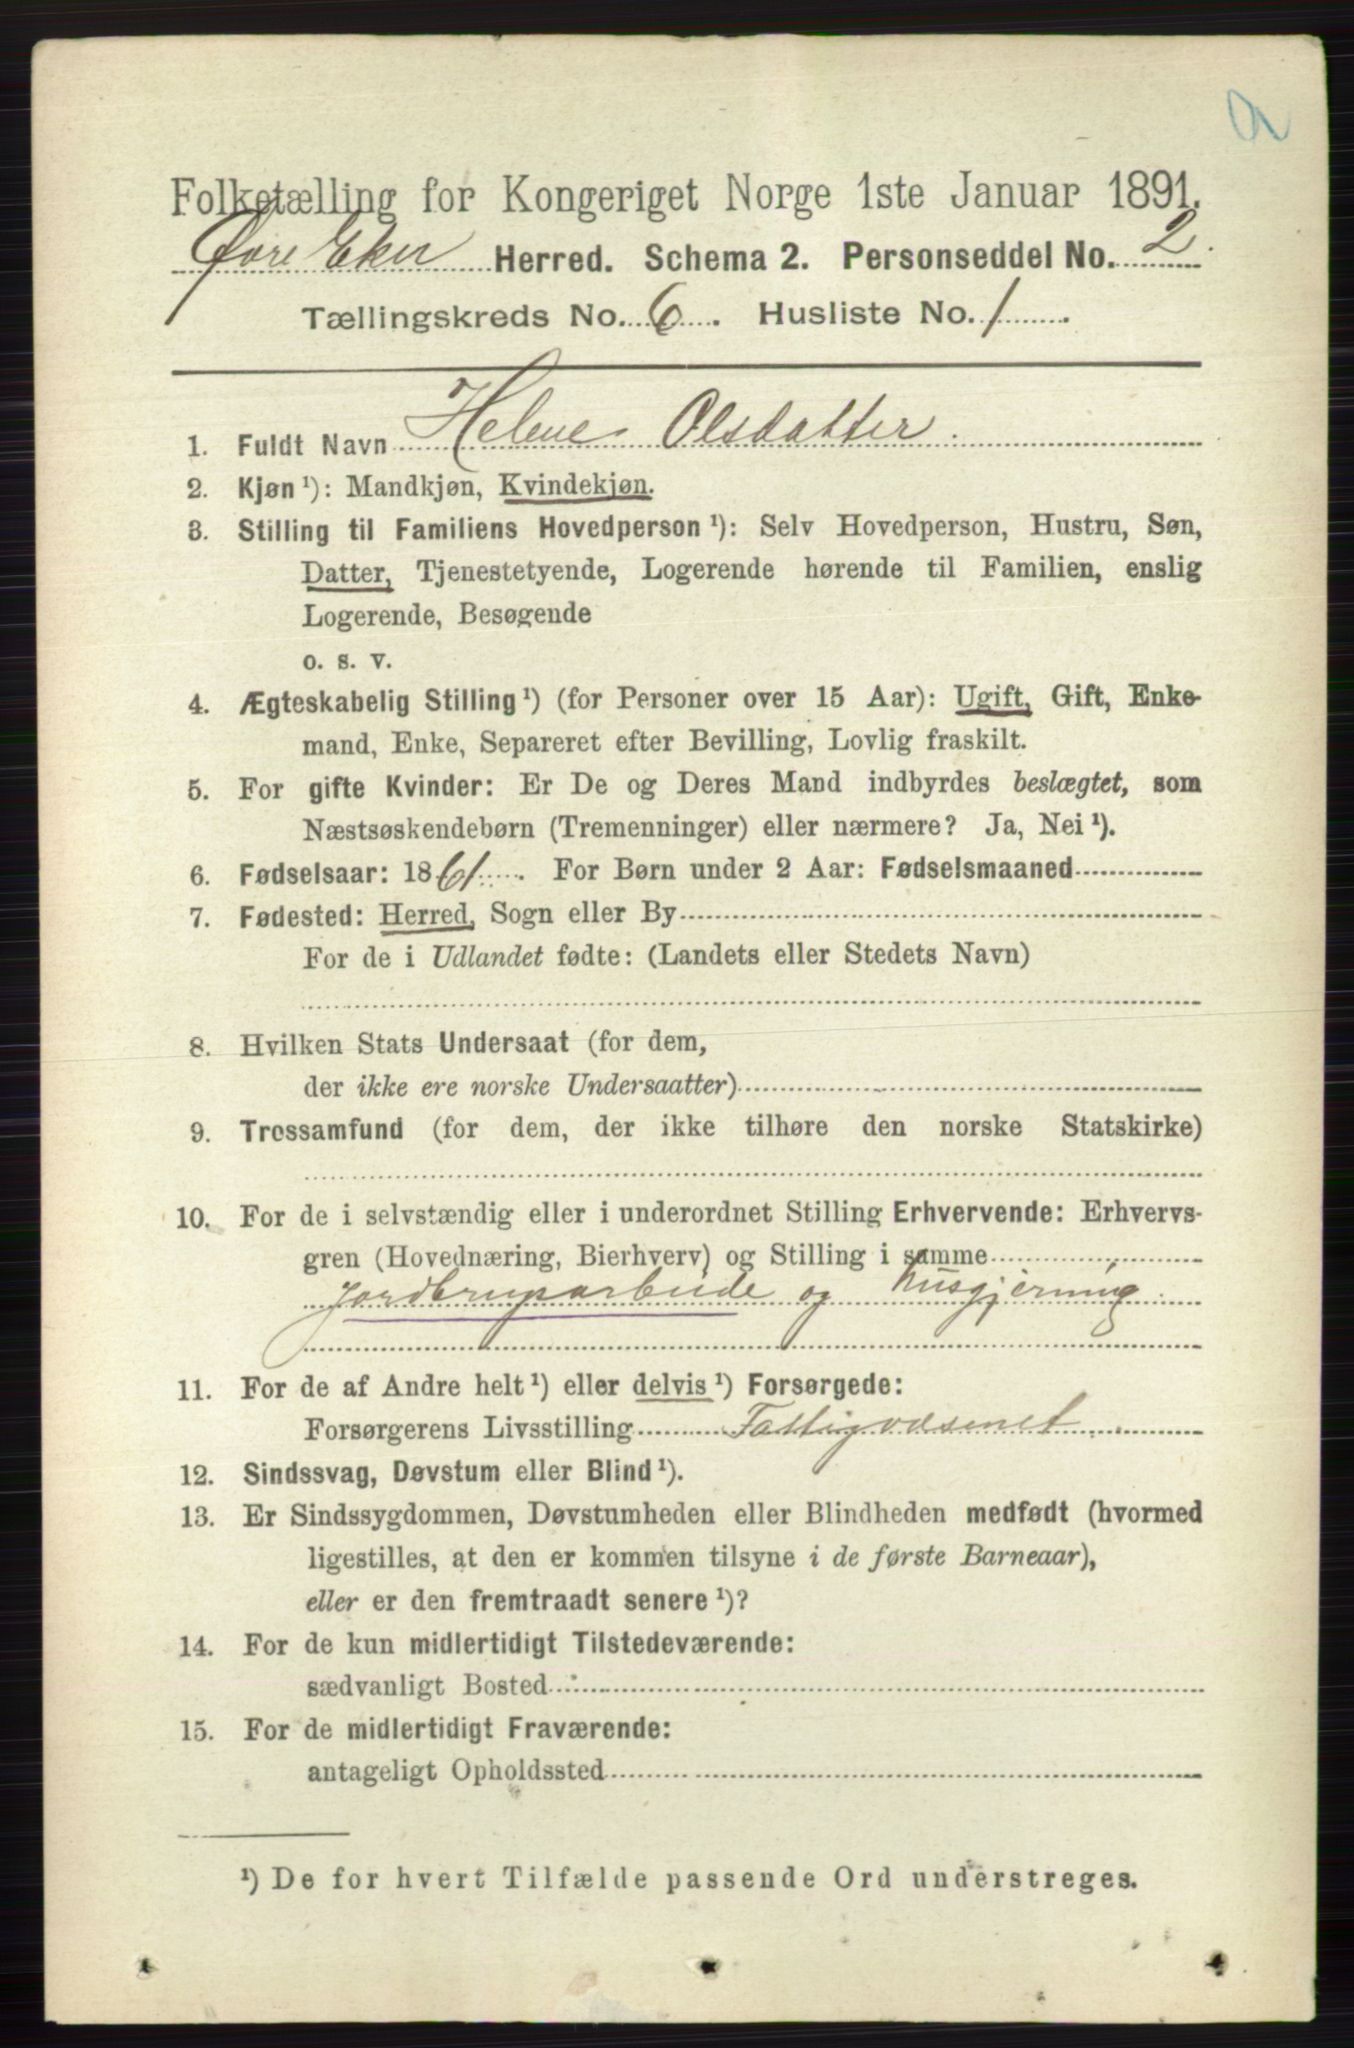 Folketælling for Kongeriget Norge 1ste Januar 1891.
Øvre Eker Herred. Schema 2. Personseddel No. 2.
Tællingskreds No. 6. Husliste No. 1.
1. Fuldt Navn Helene Olsdatter.
2. Kjøn ¹): Mandkjøn, Kvindekjøn.
3. Stilling til Familiens Hovedperson ¹): Selv Hovedperson, Hustru, Søn,
Datter, Tjenestetyende, Logerende hørende til Familien, enslig
Logerende, Besøgende
o. s. v.
4. Ægteskabelig Stilling ¹) (for Personer over 15 Aar): Ugift, Gift, Enke-
mand, Enke, Separeret efter Bevilling, Lovlig fraskilt.
5. For gifte Kvinder: Er De og Deres Mand indbyrdes beslægtet, som
Næstsøskendebørn (Tremenninger) eller nærmere? Ja, Nei ¹).
6. Fødselsaar: 1861. For Børn under 2 Aar: Fødselsmaaned
7. Fødested: Herred, Sogn eller By
For de i Udlandet fødte: (Landets eller Stedets Navn)
8. Hvilken Stats Undersaat (for dem,
der ikke ere norske Undersaatter)
9. Trossamfund (for dem, der ikke tilhøre den norske Statskirke)
10. For de i selvstændig eller i underordnet Stilling Erhvervende: Erhvervs-
gren (Hovednæring, Bierhverv) og Stilling i samme
Jordbrugsarbeide og husgjerning.
11. For de af Andre helt ¹) eller delvis ¹) Forsørgede:
Forsørgerens Livsstilling Fattigvæsenet
12. Sindssvag, Døvstum eller Blind ¹).
13. Er Sindssygdommen, Døvstumheden eller Blindheden medfødt (hvormed
ligestilles, at den er kommen tilsyne i de første Barneaar),
eller er den fremtraadt senere ¹)?
14. For de kun midlertidigt Tilstedeværende:
sædvanligt Bosted
15. For de midlertidigt Fraværende:
antageligt Opholdssted
¹) De for hvert Tilfælde passende Ord understreges.